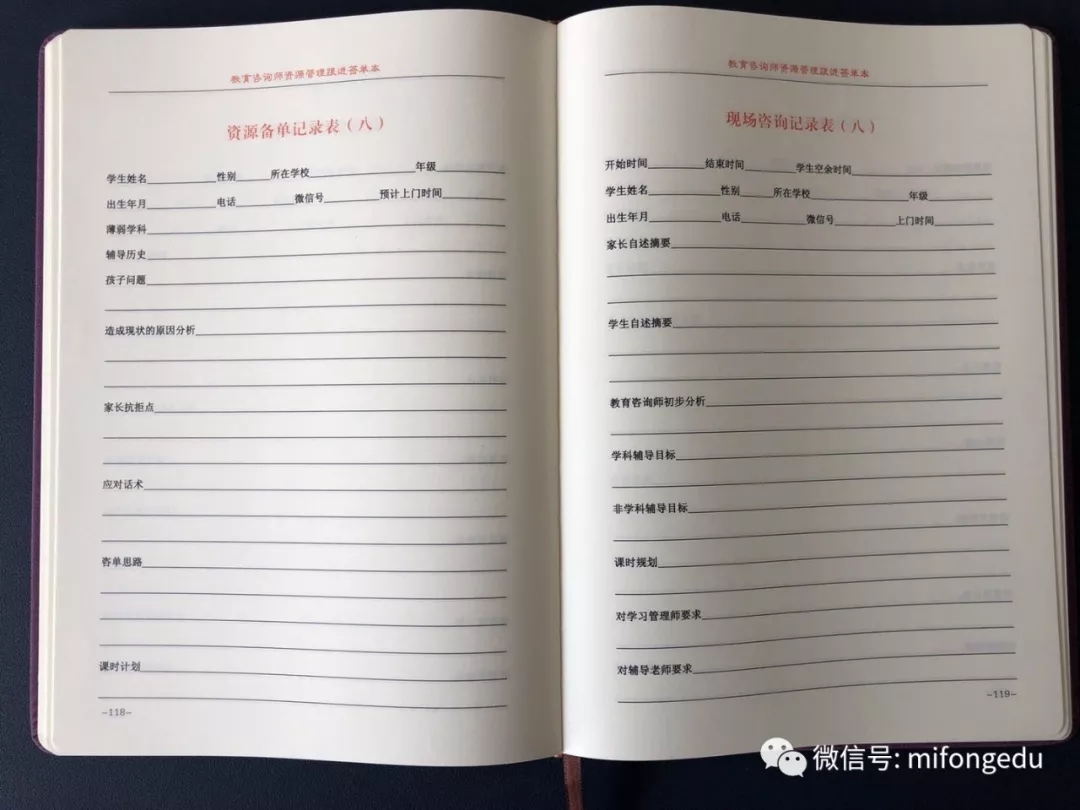 教育咨询师资源管理跟进签单本
资源备单记录表（八）
学生姓名________性别______所在学校____________年级________
出生年月________电话________微信号________预计上门时间________
薄弱学科________
辅导历史________
孩子问题________
造成现状的原因分析________
家长抗拒点________
应对话术________
咨单思路________
课时计划________
-118-
教育咨询师资源管理跟进签单本
现场咨询记录表（八）
开始时间________结束时间________学生空余时间________
学生姓名________性别______所在学校____________年级________
出生年月________电话________微信号________上门时间________
家长自述摘要________
学生自述摘要________
教育咨询师初步分析________
学科辅导目标________
非学科辅导目标________
课时规划________
对学习管理师要求________
对辅导老师要求________
-119-
微信号: mifongedu